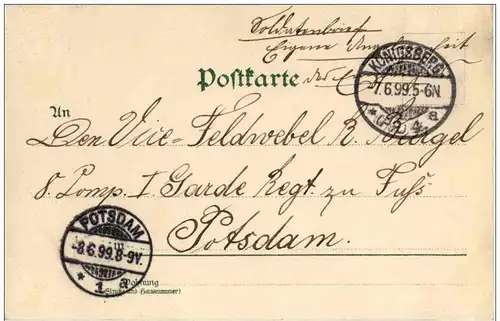 Soldatenbrief
Eigene Angelegenheit
Postkarte des
KÖNIGSBERG
7.6.99.5-6N.
* (PR) 4 a
An
Den Vice-Feldwebel R.
8. Comp. I Garde Regt. zu Fuß
Potsdam.
POTSDAM
-8.6.99.8-9V.
* 1 a
Wohnung
(Straße und Hausnummer)